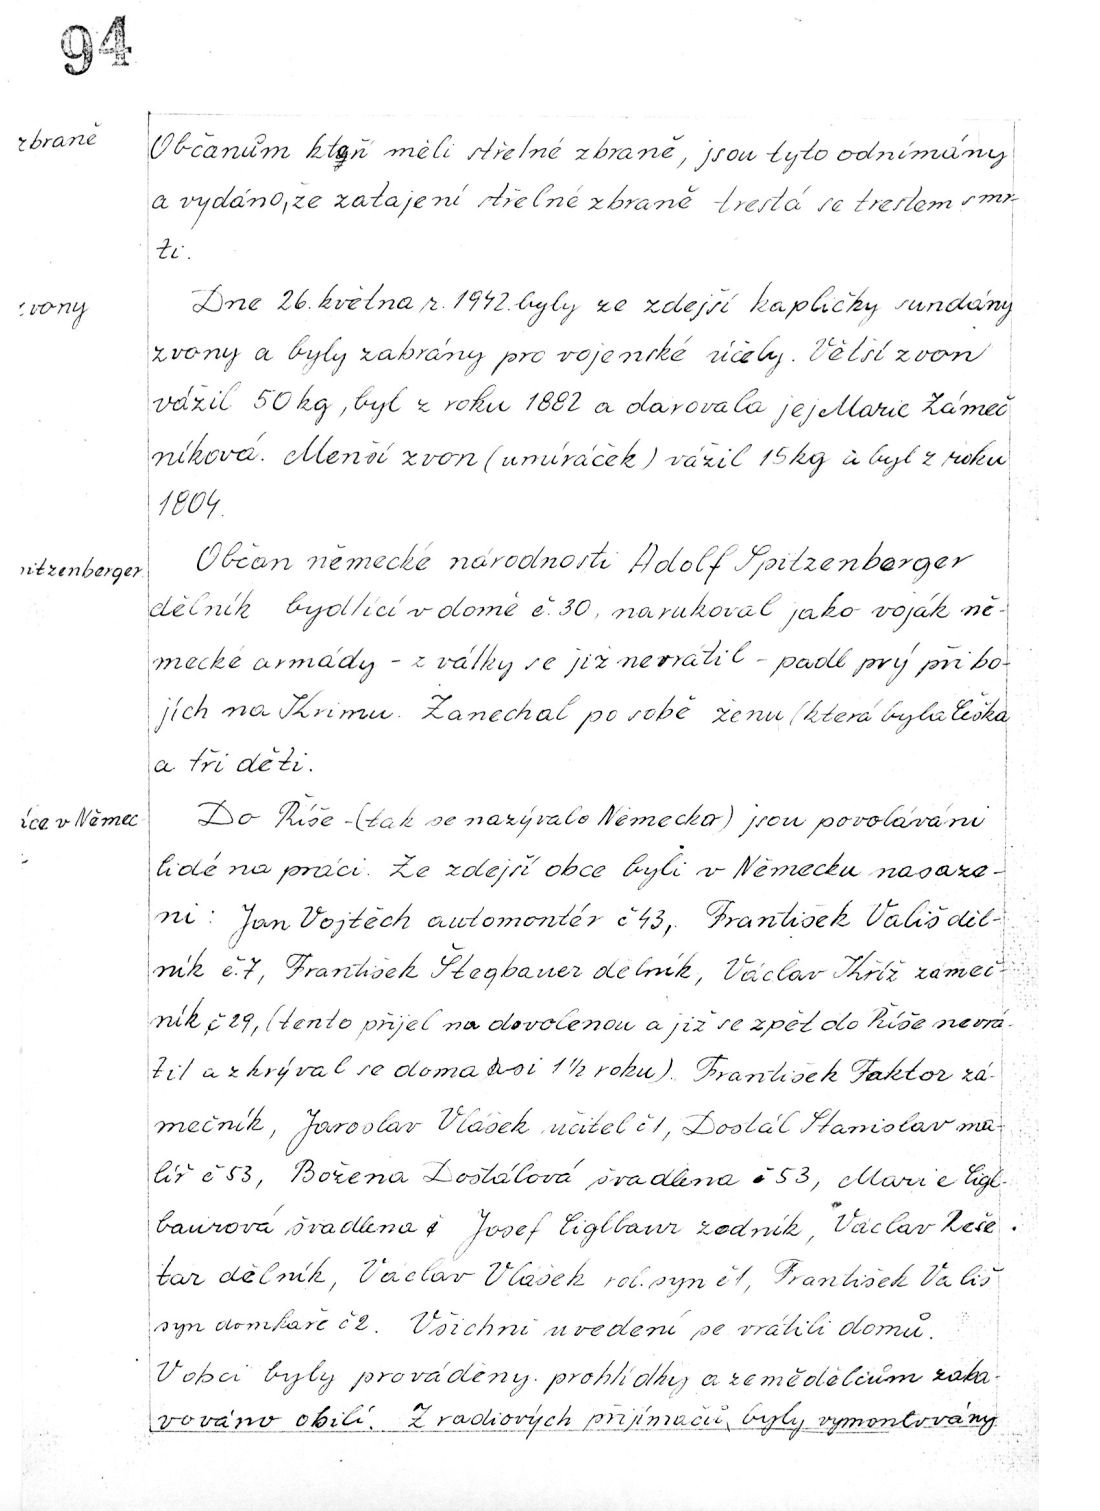 94
zbraně
Občanům kteří měli střelné zbraně, jsou tyto odnímány
a vydáno, že zatajení střelné zbraně trestá se trestem smr-
ti.
vony
Dne 26. května r. 1942 byly ze zdejší kapličky sundány
zvony a byly zabrány pro vojenské účely. Větší zvon
vážil 50 kg, byl z roku 1882 a darovala jej Marie Zámeč
níková. Menší zvon (umíráček) vážil 15 kg a byl z roku
1804.
pitzenberger
Občan německé národnosti Adolf Spitzenberger
dělník bydlící v domě č. 30, narukoval jako voják ně-
mecké armády - z války se již nevrátil - padl prý při bo-
jích na Krimu. Zanechal po sobě ženu (která byla Češka
a tři děti.
íce v Němec
Do Říše - (tak se nazývalo Německo) jsou povoláváni
lidé na práci. Ze zdejší obce byli v Německu nasaze-
ni: Jan Vojtěch automontér č 43, František Vališ děl-
ník č. 7, František Štegbauer dělník, Václav Kříž zámeč-
ník č 29, (tento přijel na dovolenou a již se zpět do Říše nevrá-
til a zkrýval se doma asi 1½ roku). František Faktor zá-
mečník, Jaroslav Vlášek učitel č 1, Dostál Stanislav ma-
líř č 53, Božena Dostálová švadlena č 53, Marie Cigl-
baurová švadlena č Josef Ciglbaur zedník, Václav Řeše
tar dělník, Václav Vlášek rol. syn č 1, František Vališ
syn domkaře č 2. Všichni uvedení se vrátili domů.
V obci byly prováděny prohlídky a zemědělcům zaba-
vováno obilí. Z radiových přijímačů byly vymontovány